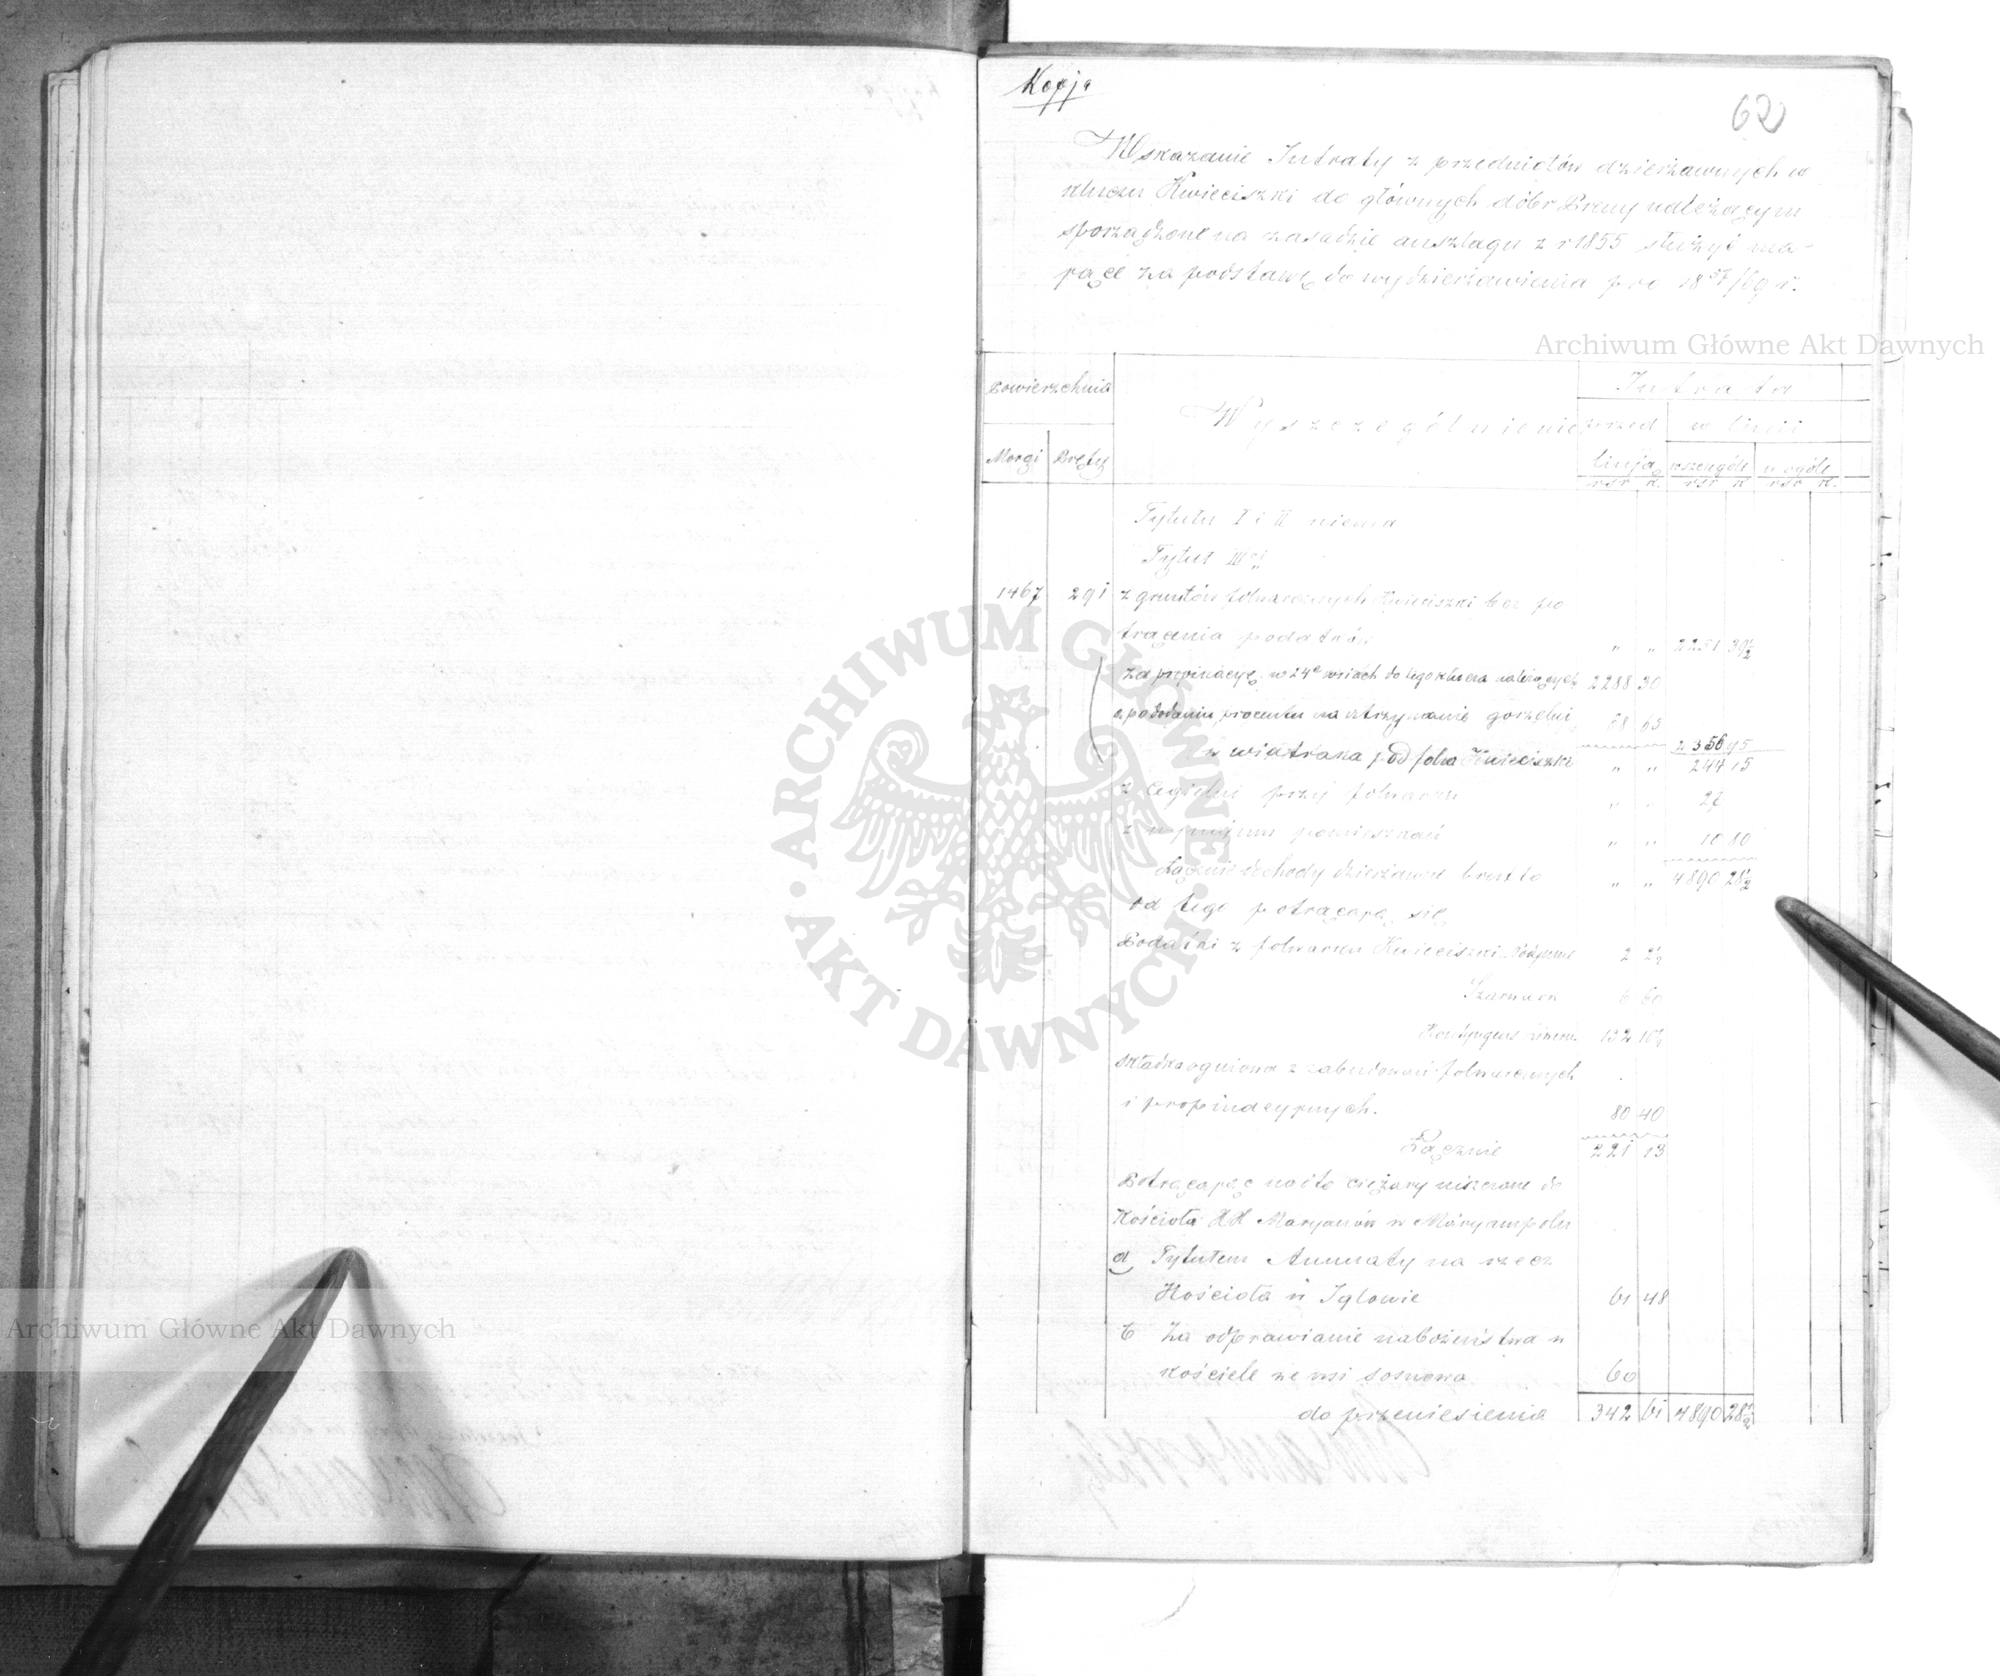 Kopja
62
Wskazanie Intraty z przedmiotów dzierżawnych w
kluczu Kwieciszki do głównych dóbr Preny należącym
sporządzone na zasadzie anszlagu z r 1855 służyć ma-
jące za podstawę do wydzierżawienia pro 18 57/69 r.
Archiwum Główne Akt Dawnych
Powierzchnia
Morgi Pręty
Wyszczególnienie
Intrata
przed linją
w linii
w szczególe w ogóle
rsr k. rsr k rsr k.
Tytułu I i II niema
Tytuł III
1467 291 z gruntów folwarcznych Kwieciszki bez po
trącenia podatków " " 2251 39½
za propinacyę w 24 wsiach do tego klucza należących 2288 30
o pododaniu procentu na utrzymanie gorzelni 68 65
2356 95
z wiatraka pod folw Kwieciszki " " 244 15
z cegielni przy folwarku " " 27
z najmu pomieszkań " " 10 80
Łącznie dochody dzierżawne brutto " " 4890 28½
od tego potrącają się
Podatki z folwarku Kwieciszki Podymne 2 2½
Szarwark 6 60
Kontyngens liwerun. 132 10½
składka ogniowa z zabudowań folwarcznych
i propinacyjnych. 80 40
Łącznie 221 13
Potrącając nadto ciężary niszczone do
Kościoła XX Maryanów w Maryampolu
a Tytułem Annuaty na rzecz
Kościoła w Igłowie 61 48
b Za odprawianie nabożeństwa w
kościele we wsi Sosnowo 60
do przeniesienia 342 61 4890 28½
ARCHIWUM GŁÓWNE
AKT DAWNYCH
Archiwum Główne Akt Dawnych